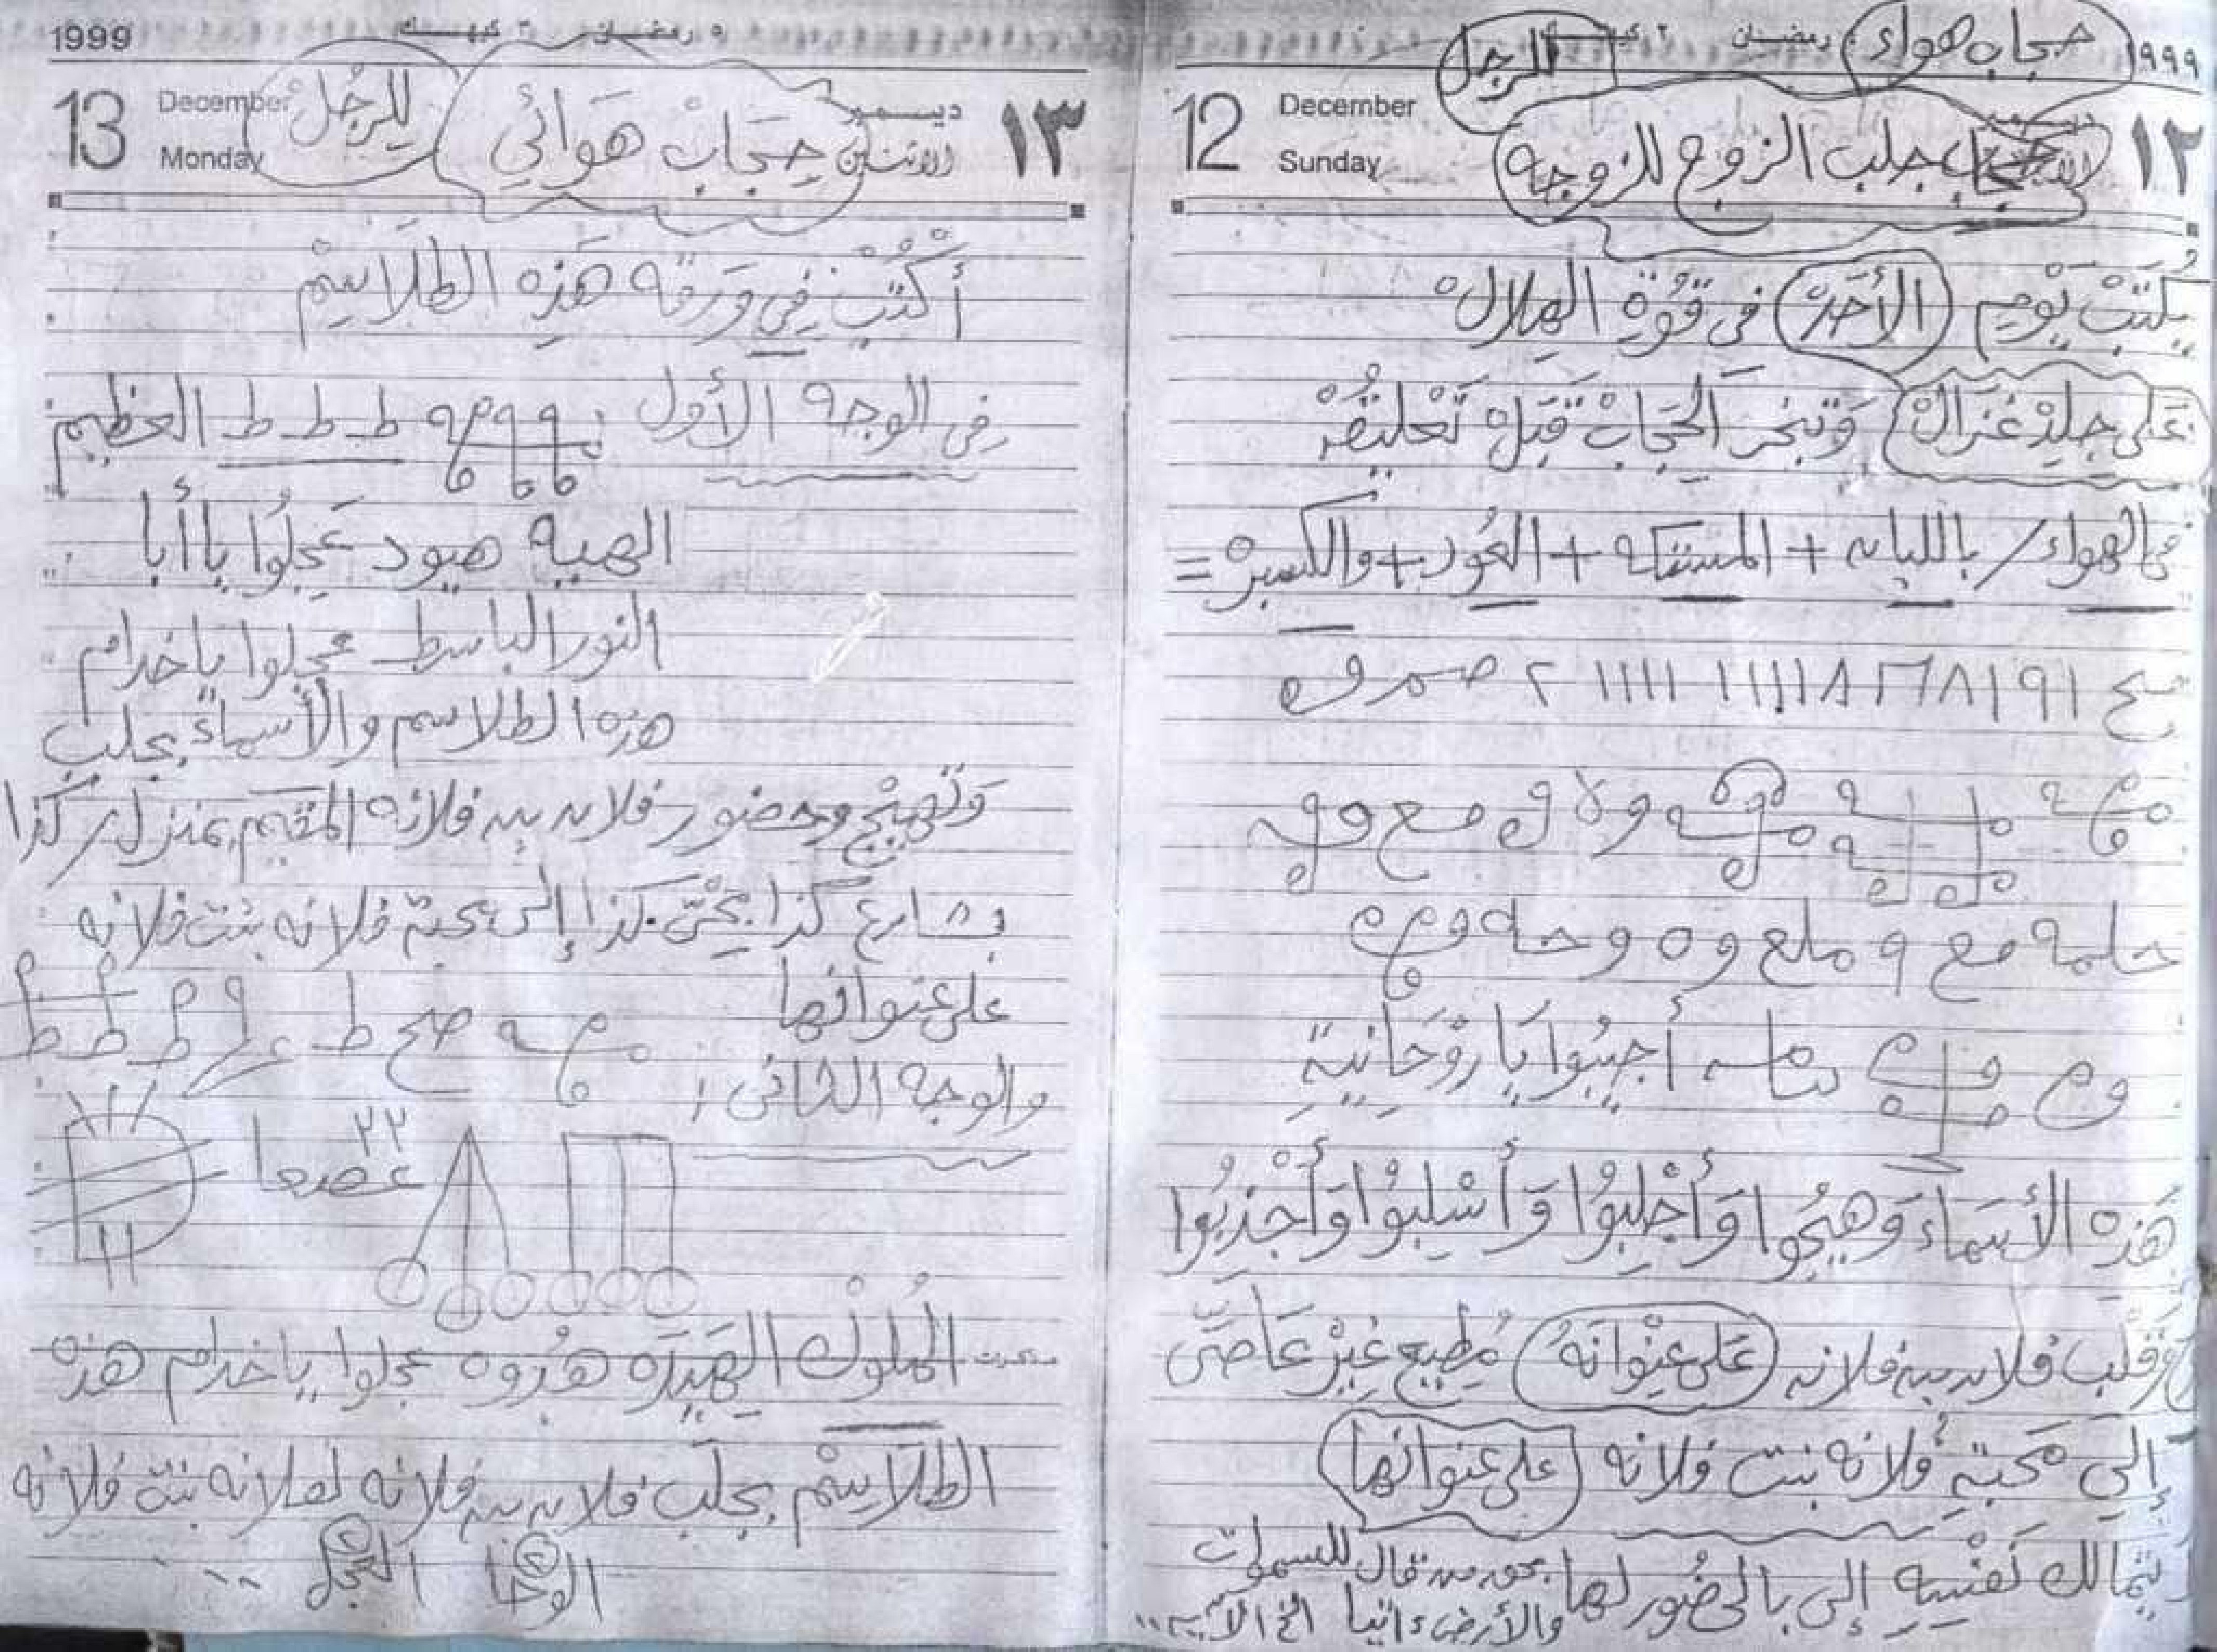 حجاب هواء
رمضان
للرجل
١٩٩٩
12
December
Sunday
ديسمبر
١٢
حجاب جلب الزوج للزوجه
يُكتَبْ يَوْمِ الأَحَدْ فى قُوَةِ الهِلالْ
عَلى جِلدْ غَزالْ وَتبخر الحِجَابْ قَبَلْ تَعْليقُهْ
فى الهواء / باللبان + المستكه + العُود + والكسبرْه =
صح ١٩١ ٨ ١١١١ ١١١١ ٢
و لا و مع وو
حلمه مع ٩ ملع و ه و حله وم
أجِيبُوا يَا رَوْحَانِيَةِ
هَذِه الأَسمَاء وَهيَّجُوا وَأَجْلِبُوا وَأَسْلِبُوا وَأَجْذِبُوا
وَقَلْب فلان بن فلانه عَلى عِنْوَانَهُ مُطِيع غيْرْ عَاصَّى
إلَى مَحَبَةِ فُلانه بنت فلانه على عنوانها
يتمالك نَفْسِهِ إلى بالحضُور لها بحق من قال للسموات
والأرض ءاتيا الخ الآيه ..
1999
٥ رمضان ٣ كيهك
13
December
Monday
ديسمبر
الاثنين
١٣
حِجَابْ هَوائي
للرجُلْ
أَكْتُبْ فِي وَرَقه هَذِه الطلَاسِمْ
فِى الوجه الأول ط ط ط العظيم
الهيه هيود عَجِلُوا يا أبا
النور الباسط عجلوا يا خدام
هذه الطلاسم والأسماءَ بجلب
وَتَهيّجْ وحضور فلان بن فلانه المقيم بمنزل / كذا
بشارع كذا بحَىّ كذا إلى محبة فلانه بنت فلانه
على عنوانها
صح ط
والوجه الثانى /
٢٢
عصعا
المُلوُكْ هذه عجلوا يا خدام هذه
الطلَاسِمْ بجلَب فلان بن فلانه لفلانه بنت فلانه
الوحا العجل ..